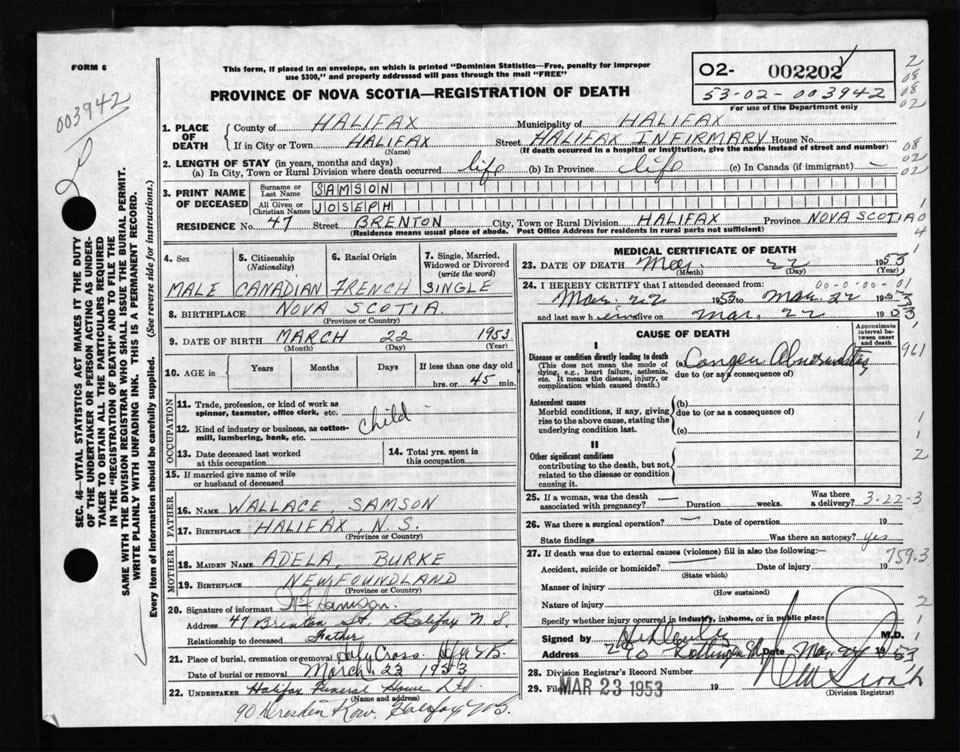 FORM 6
This form, if placed in an envelope, on which is printed "Dominion Statistics—Free, penalty for improper
use $300," and properly addressed will pass through the mail "FREE"
PROVINCE OF NOVA SCOTIA—REGISTRATION OF DEATH
02- 002202
53-02-003942
For use of the Department only
003942
2
08
02
08
02
SEC. 46—VITAL STATISTICS ACT MAKES IT THE DUTY
OF THE UNDERTAKER OR PERSON ACTING AS UNDER-
TAKER TO OBTAIN ALL THE PARTICULARS REQUIRED
IN THE "REGISTRATION OF DEATH" AND TO FILE THE
SAME WITH THE DIVISION REGISTRAR WHO SHALL ISSUE THE BURIAL PERMIT.
WRITE PLAINLY WITH UNFADING INK. THIS IS A PERMANENT RECORD.
Every item of information should be carefully supplied. (See reverse side for instructions.)
1. PLACE OF DEATH
County of HALIFAX Municipality of HALIFAX
If in City or Town HALIFAX Street HALIFAX INFIRMARY House No.
(Name) (If death occurred in a hospital or institution, give the name instead of street and number)
2. LENGTH OF STAY (in years, months and days)
(a) In City, Town or Rural Division where death occurred life (b) In Province life (c) In Canada (if immigrant) —
3. PRINT NAME OF DECEASED
Surname or Last Name SAMSON
All Given or Christian Names JOSEPH
RESIDENCE No. 47 Street BRENTON City, Town or Rural Division HALIFAX Province NOVA SCOTIA
(Residence means usual place of abode. Post Office Address for residents in rural parts not sufficient)
4. Sex 5. Citizenship (Nationality) 6. Racial Origin 7. Single, Married, Widowed or Divorced (write the word)
MALE CANADIAN FRENCH SINGLE
8. BIRTHPLACE NOVA SCOTIA
(Province or Country)
9. DATE OF BIRTH MARCH 22 1953
(Month) (Day) (Year)
10. AGE in Years Months Days If less than one day old
hrs. or 45 min.
OCCUPATION
11. Trade, profession, or kind of work as
spinner, teamster, office clerk, etc.
12. Kind of industry or business, as cotton-
mill, lumbering, bank, etc.
Child
13. Date deceased last worked
at this occupation
14. Total yrs. spent in
this occupation
15. If married give name of wife
or husband of deceased
FATHER
16. NAME WALLACE SAMSON
17. BIRTHPLACE HALIFAX, N.S.
(Province or Country)
MOTHER
18. MAIDEN NAME ADELA BURKE
19. BIRTHPLACE NEWFOUNDLAND
(Province or Country)
20. Signature of informant Samson.
Address 47 Brenton St. Halifax N.S.
Relationship to deceased Father
21. Place of burial, cremation or removal Holy Cross
Date of burial or removal March 23 1953
22. UNDERTAKER Halifax Funeral Home Ltd.
(Name and address)
90 Dresden Row. Halifax N.S.
MEDICAL CERTIFICATE OF DEATH
23. DATE OF DEATH Mar. 22 1953
(Month) (Day) (Year)
24. I HEREBY CERTIFY that I attended deceased from: 00-0-00-01
Mar. 22 1953 to Mar. 22 1953
and last saw h alive on Mar. 22 1953
CAUSE OF DEATH
Approximate interval between onset and death
I
Disease or condition directly leading to death
(This does not mean the mode of
dying, e.g., heart failure, asthenia,
etc. It means the disease, injury, or
complication which caused death.)
(a)
due to (or as consequence of)
961
Antecedent causes
Morbid conditions, if any, giving
rise to the above cause, stating the
underlying condition last.
(b)
due to (or as a consequence of)
(c)
II
Other significant conditions
contributing to the death, but not
related to the disease or condition
causing it.
25. If a woman, was the death
associated with pregnancy? — Duration weeks. Was there
a delivery? 3-22-3
26. Was there a surgical operation? — Date of operation 19
State findings Was there an autopsy? yes
27. If death was due to external causes (violence) fill in also the following:—
759.3
Accident, suicide or homicide? Date of injury 19
(State which)
Manner of injury
(How sustained)
Nature of injury
Specify whether injury occurred in industry, in home, or in public place
Signed by M.D.
Address Date Mar 1953
28. Division Registrar's Record Number
29. Filed MAR 23 1953 19
(Division Registrar)